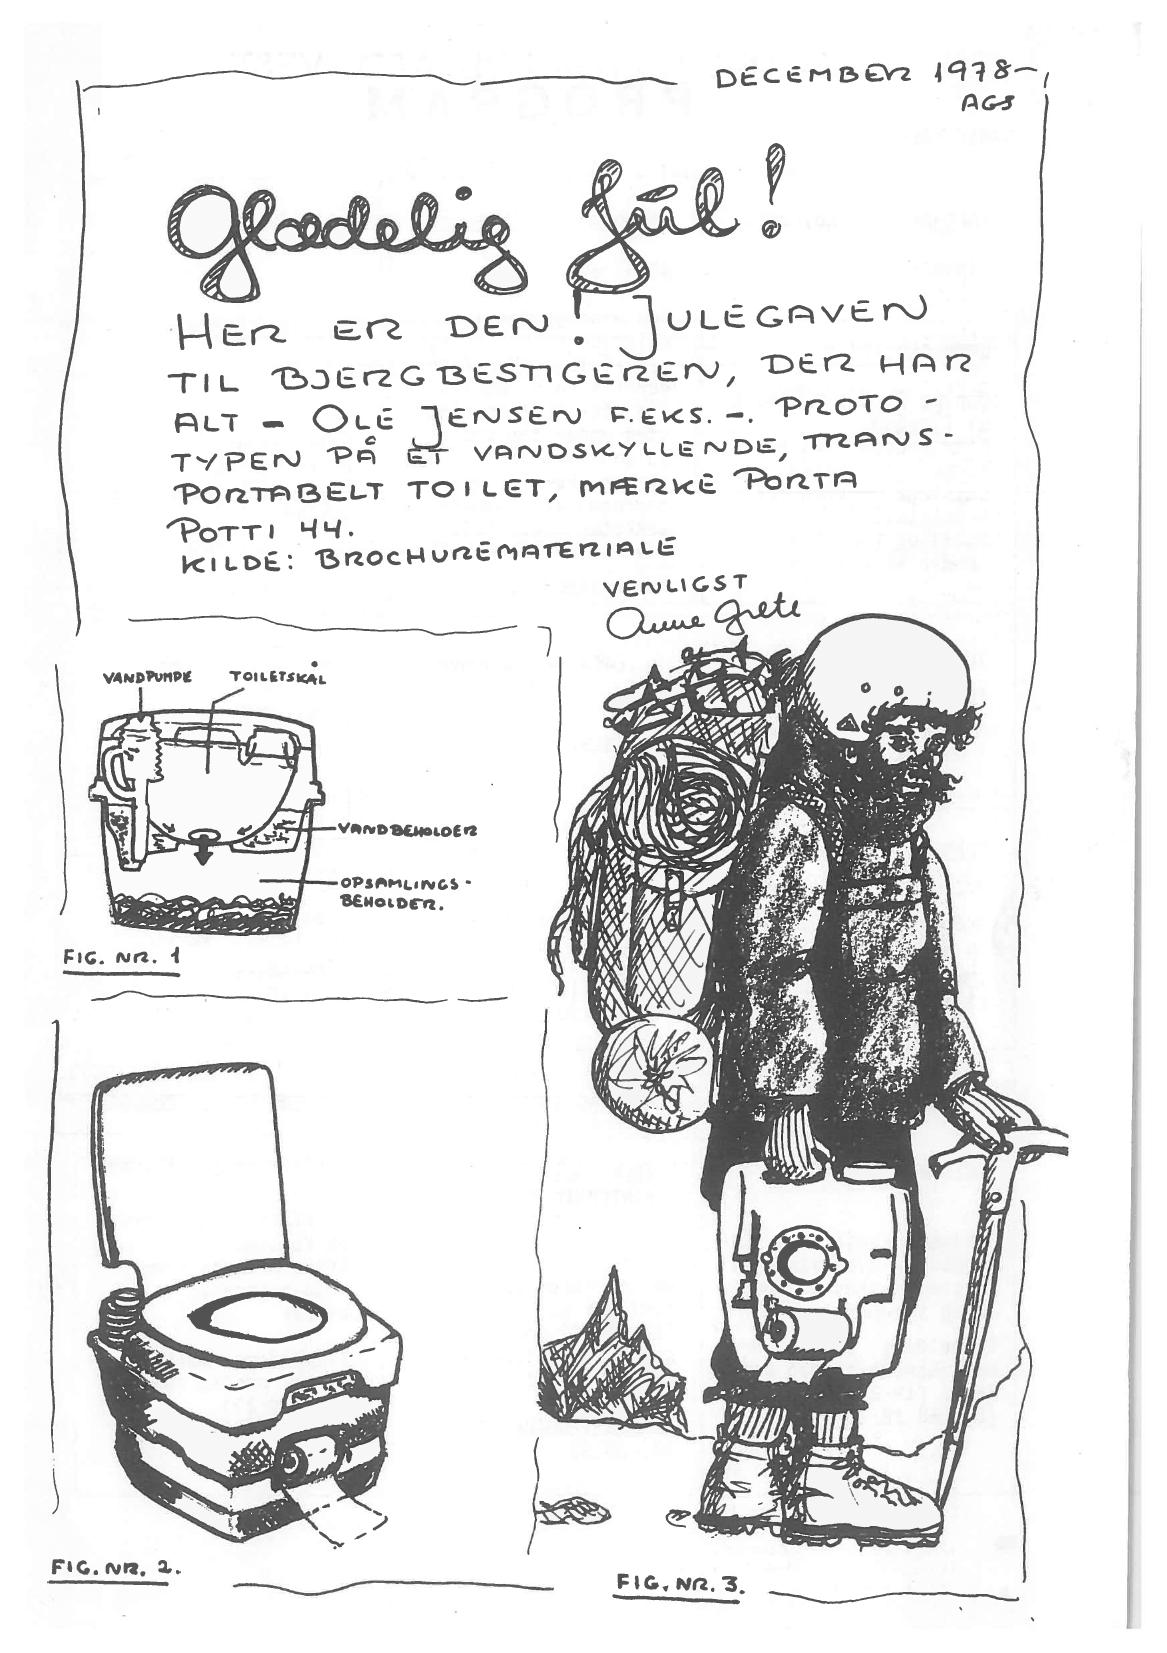 DECEMBER 1978-
AGS
Glædelig Jul!
HER ER DEN! JULEGAVEN
TIL BJERGBESTIGEREN, DER HAR
ALT - OLE JENSEN F.EKS. -. PROTO-
TYPEN PÅ ET VANDSKYLLENDE, TRANS-
PORTABELT TOILET, MÆRKE PORTA
POTTI 44.
KILDE: BROCHUREMATERIALE
VENLIGST
Anne Grete
VANDPUMPE TOILETSKÅL
VANDBEHOLDER
OPSAMLINGS-
BEHOLDER.
FIG. NR. 1
FIG. NR. 2.
FIG. NR. 3.